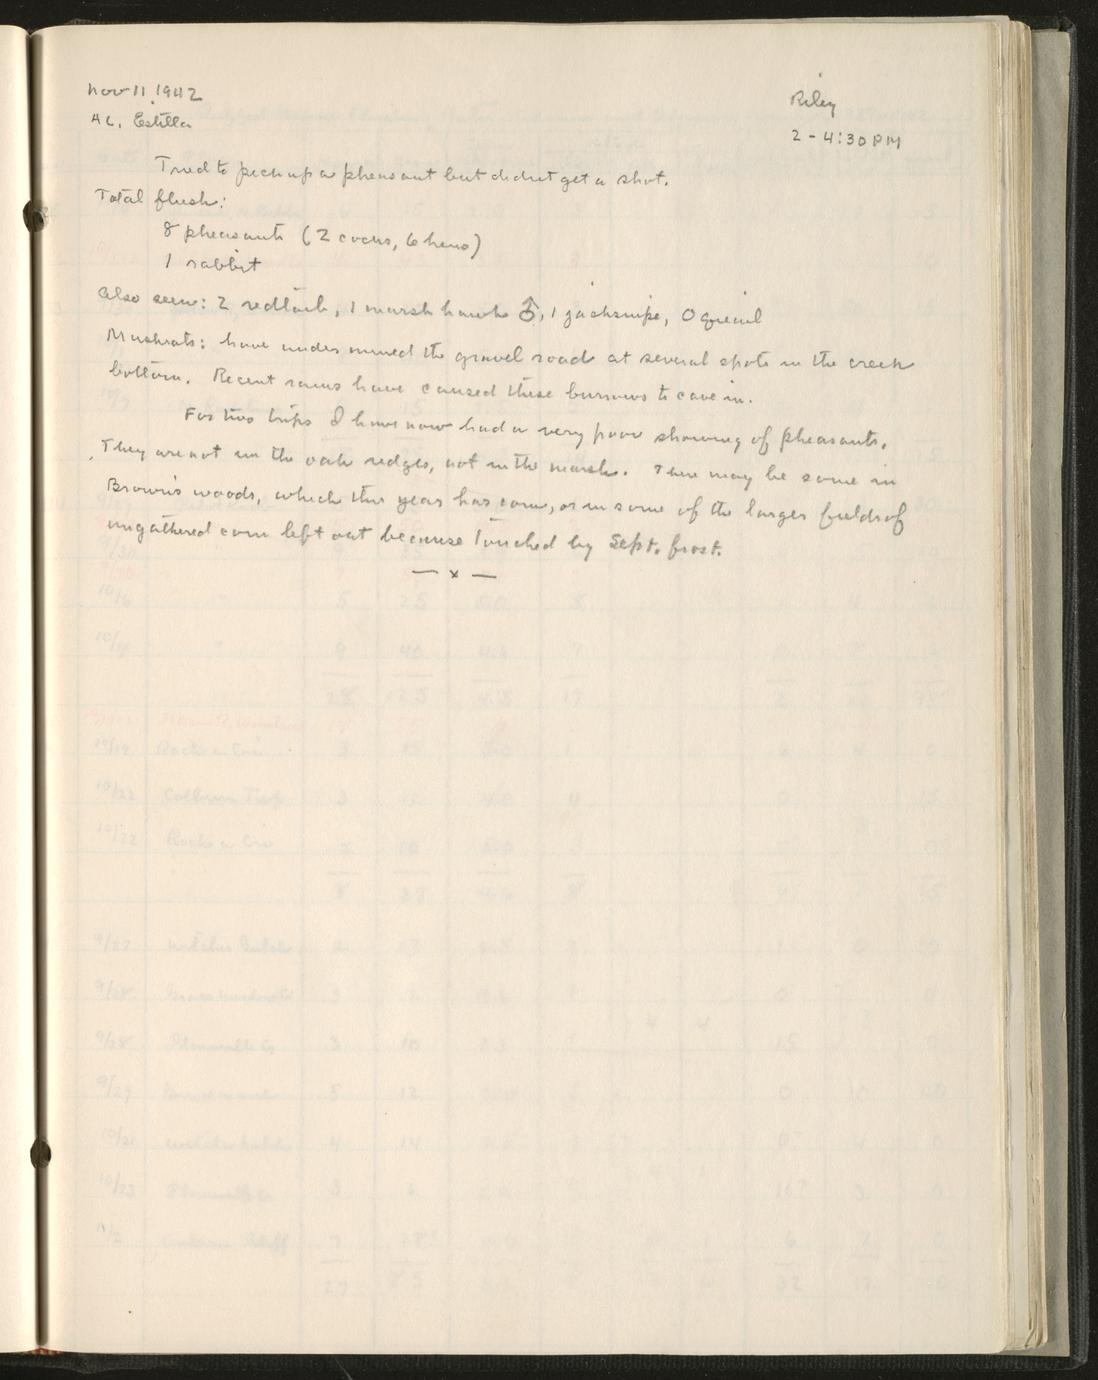 Nov 11 1942
Riley
AL, Estella
2 - 4:30 PM
Tried to pick up a pheasant but didnt get a shot.
Total flush:
8 pheasants (2 cocks, 6 hens)
1 rabbit
Also seen: 2 redtails, 1 marsh hawk ♂, 1 jacksnipe, 0 quail
Muskrats: have undermined the gravel road at several spots in the creek
bottom. Recent rains have caused these burrows to cave in.
For two trips I have now had a very poor showing of pheasants.
They are not in the oak ridges, not in the marsh. There may be some in
Brown's woods, which this year has corn, or in some of the larger fields of
ungathered corn left out because touched by Sept. frost.
— x —